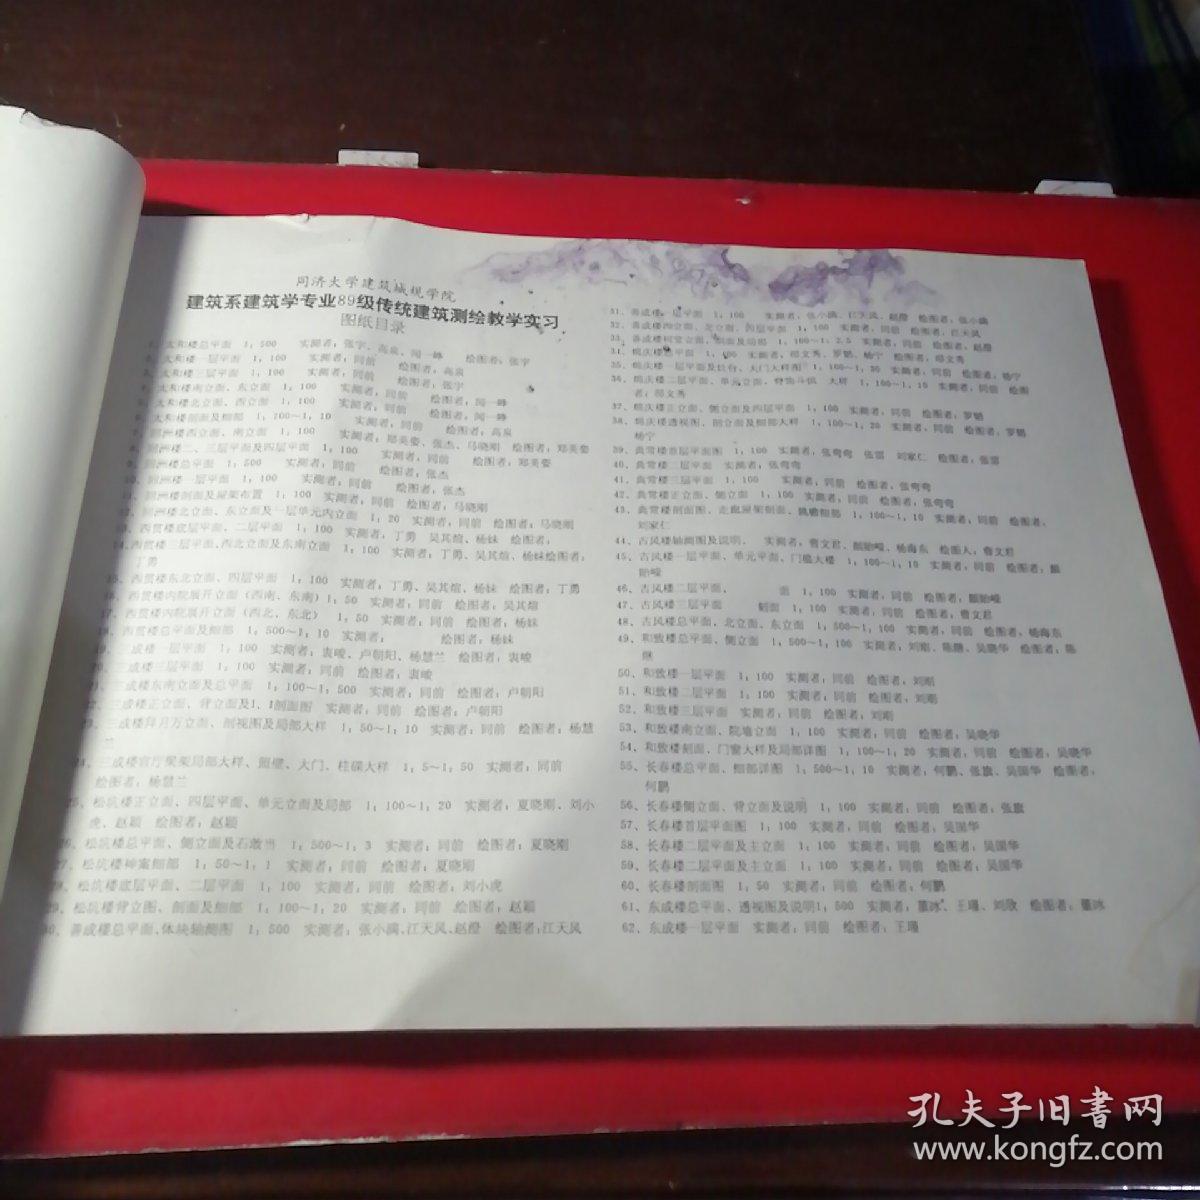 同济大学建筑城规学院
建筑系建筑学专业89级传统建筑测绘教学实习
图纸目录
1、太和楼总平面 1:500 实测者:张宇、高泉、闻一峰 绘图者:张宇
2、太和楼一层平面 1:100 实测者:同前 绘图者:高泉
3、太和楼三层平面 1:100 实测者:同前 绘图者:张宇
4、太和楼南立面、东立面 1:100 实测者:同前 绘图者:闻一峰
5、太和楼北立面、西立面 1:100 实测者:同前 绘图者:闻一峰
6、太和楼剖面及细部 1:200~1:10 实测者:同前 绘图者:高泉
楼西立面、南立面 1:100 实测者:郑美娈、张杰、马晓刚 绘图者:郑美娈
楼二、三层平面及四层平面 1:100 实测者:同前 绘图者:郑美娈
楼总平面 1:500 实测者:同前 绘图者:张杰
楼一层平面 1:100 实测者:同前 绘图者:张杰
楼剖面及屋架布置 1:100 实测者:同前 绘图者:马晓刚
楼北立面、东立面及一层单元内立面 1:20 实测者:同前 绘图者:马晓刚
西贯楼底层平面、二层平面 1:100 实测者:丁勇 吴其煊、杨妹 绘图者:
14、西贯楼三层平面、西北立面及东南立面 1:100 实测者:丁勇、吴其煊、杨妹绘图者:
丁勇
15、西贯楼东北立面、四层平面 1:100 实测者:丁勇、吴其煊、杨妹 绘图者:丁勇
16、西贯楼内院展开立面(西南、东南)1:50 实测者:同前 绘图者:吴其煊
17、西贯楼内院展开立面(西北、东北) 1:50 实测者:同前 绘图者:杨妹
18、西贯楼总平面及细部 1:500~1:10 实测者: 绘图者:杨妹
19、三成楼一层平面 1:100 实测者:袁峻、卢朝阳、杨慧兰 绘图者:袁峻
20、三成楼三层平面 1:100 实测者:同前 绘图者:袁峻
21、三成楼东南立面及总平面 1:100~1:500 实测者:同前 绘图者:卢朝阳
22、三成楼正立面、背立面及1:1剖面图 实测者:同前 绘图者:卢朝阳
23、三成楼拜月万立面、剖视图及局部大样 1:50~1:10 实测者:同前 绘图者:杨慧
兰
24、三成楼官厅梁架局部大样、照壁、大门、柱礎大样 1:5~1:50 实测者:同前
绘图者:杨慧兰
25、松坑楼正立面、四层平面、单元立面及局部 1:100~1:20 实测者:夏晓刚、刘小
虎、赵颖 绘图者:赵颖
26、松坑楼总平面、侧立面及石敢当 1:500~1:3 实测者:同前 绘图者:夏晓刚
27、松坑楼神案细部 1:50~1:1 实测者:同前 绘图者:夏晓刚
28、松坑楼底层平面、二层平面 1:100 实测者:同前 绘图者:刘小虎
29、松坑楼背立图、剖面及细部 1:100~1:20 实测者:同前 绘图者:赵颖
30、善成楼总平面、体块轴测图 1:500 实测者:张小满、江天风、赵澄 绘图者:江天风
31、善成楼一层平面 1:100 实测者:张小满、江天风、赵澄 绘图者:张小满
32、善成楼四立面、北立面、四层平面 1:100 实测者:同前 绘图者:江天风
33、善成楼祠堂立面、剖面及局部 1:100~1:2.5 实测者:同前 绘图者:赵澄
34、庆楼总平面 1:100 实测者:邢文秀、罗韬、杨宁 绘图者:邢文秀
35、庆楼一层平面及灶台、大门大样图 1:100~1:30 实测者:同前 绘图者:杨宁
36、庆楼二层平面、单元立面、脊饰斗拱 大样 1:100~1:10 实测者:同前 绘图
者:邢文秀
37、庆楼正立面、侧立面及四层平面 1:100 实测者:同前 绘图者:罗韬
38、庆楼透视图、剖立面及细部大样 1:100~1:20 实测者:同前 绘图者:罗韬
杨宁
39、典常楼首层平面图 1:100 实测者:张弯弯 张雷 刘家仁 绘图者:张雷
40、典常楼二层平面 实测者:张弯弯
41、典常楼三层平面 1:100 实测者:同前 绘图者:张弯弯
42、典常楼正立面、侧立面 1:100 实测者:同前 绘图者:张弯弯
43、典常楼剖面图、走廊屋架剖面、挑檐细部 1:100~1:10 实测者:同前 绘图者:
刘家仁
44、古风楼轴测图及说明、 实测者:曹文君、颜贻嵘、杨海东 绘图人:曹文君
45、古风楼一层平面、单元平面、门槛大楼 1:100~1:10 实测者:同前 绘图者:颜
贻嵘
46、古风楼二层平面、 面 1:100 实测者:同前 绘图者:颜贻嵘
47、古风楼三层平面 剖面 1:100 实测者:同前 绘图者:曹文君
48、古风楼总平面、北立面、东立面 1:500~1:100 实测者:同前 绘图者:杨海东
49、和致楼总平面、侧立面 1:500~1:100 实测者:刘刚、陈继、吴晓华 绘图者:陈
继
50、和致楼一层平面 1:100 实测者:同前 绘图者:刘刚
51、和致楼二层平面 1:100 实测者:同前 绘图者:刘刚
52、和致楼三层平面 实测者:同前 绘图者:刘刚
53、和致楼南立面、院墙立面 1:100 实测者:同前 绘图者:吴晓华
54、和致楼剖面、门窗大样及局部详图 1:100~1:20 实测者:同前 绘图者:吴晓华
55、长春楼总平面、细部详图 1:500~1:10 实测者:何鹏、张旗、吴国华 绘图者:
何鹏
56、长春楼侧立面、背立面及说明 1:100 实测者:同前 绘图者:张旗
57、长春楼首层平面图 1:100 实测者:同前 绘图者:吴国华
58、长春楼二层平面及主立面 1:100 实测者:同前 绘图者:吴国华
59、长春楼二层平面及主立面 1:100 实测者:同前 绘图者:吴国华
60、长春楼剖面图 1:50 实测者:同前 绘图者:何鹏
61、东成楼总平面、透视图及说明1:500 实测者:董冰、王璠、刘敏 绘图者:董冰
62、东成楼一层平面 实测者:同前 绘图者:王璠
孔夫子旧書网
www.kongfz.com